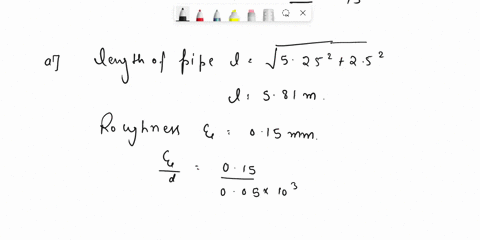 a) length of pipe l = √5.25² + 2.5²
l = 5.81 m.
Roughness ε = 0.15 mm.
ε/d = 0.15 / 0.05 × 10³